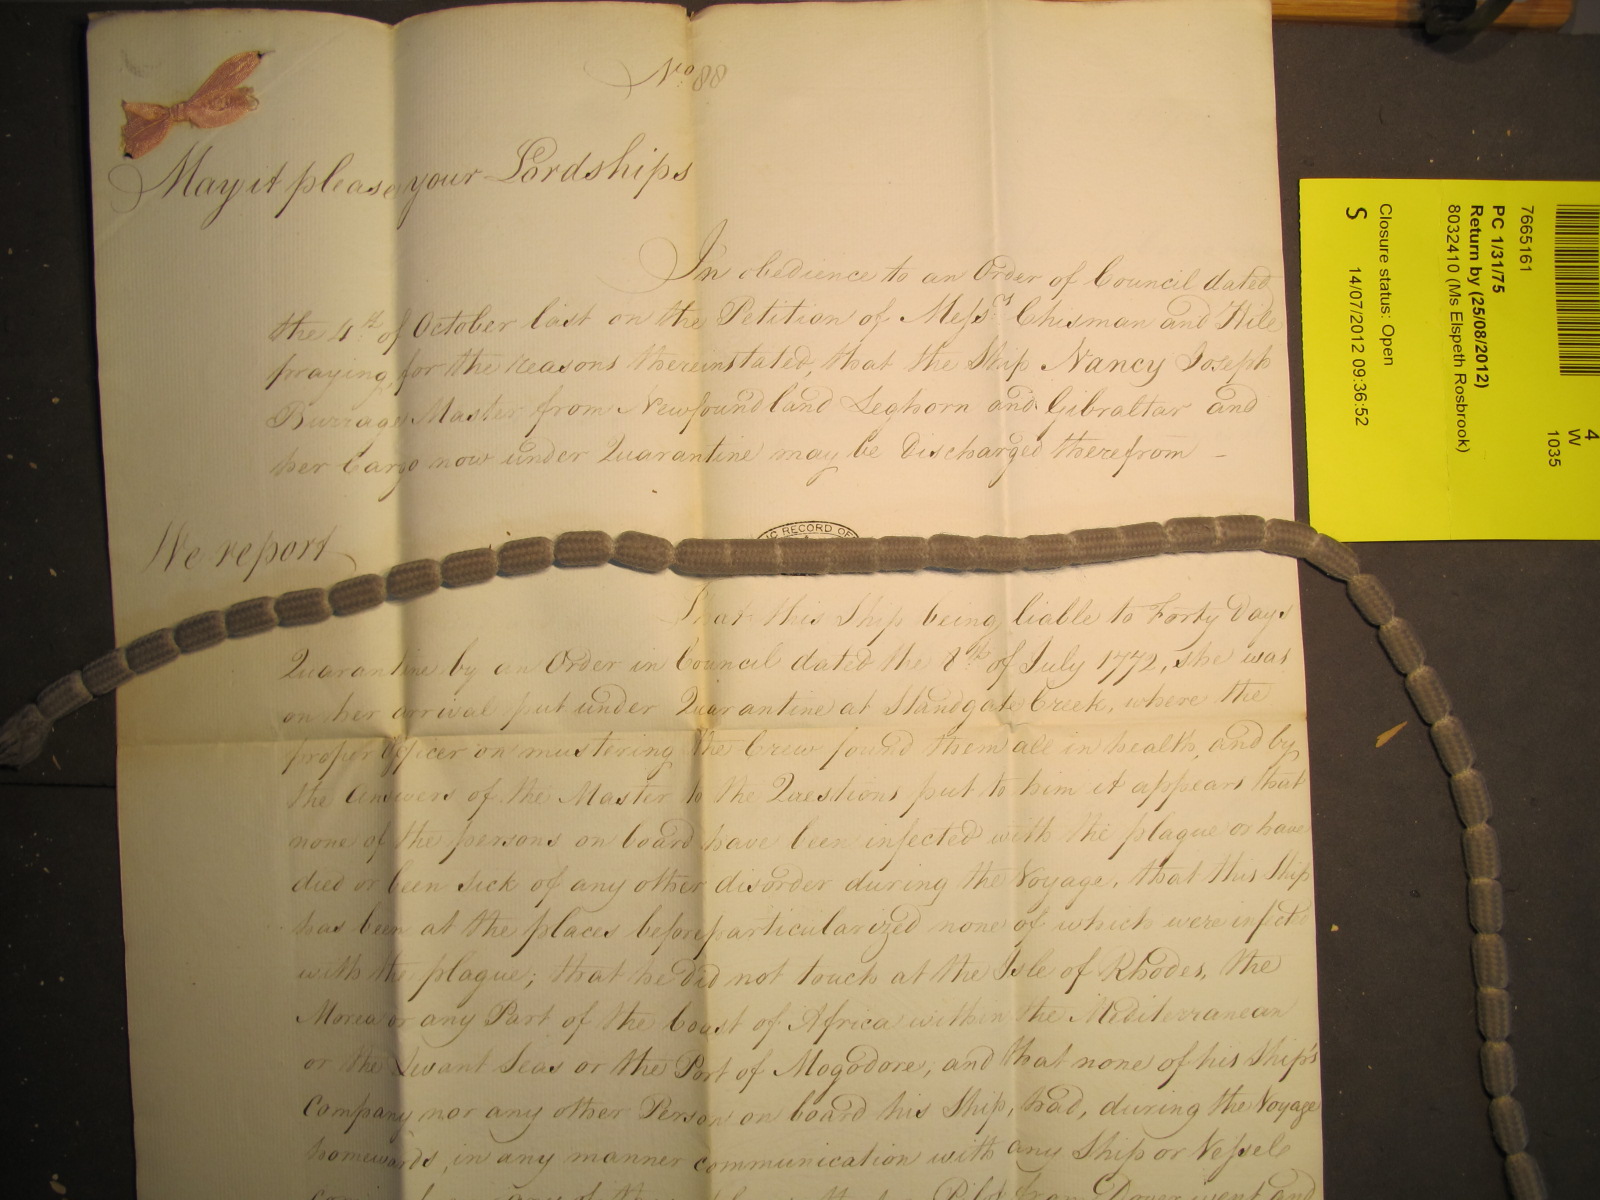 No. 88
May it please your Lordships
In obedience to an Order of Council dated
the 4th of October last on the Petition of Messrs Chisman and Hile
praying, for the Reasons therein stated, that the Ship Nancy Joseph
Burrage Master from Newfoundland Leghorn and Gibraltar and
her Cargo now under Quarantine may be Discharged therefrom –
IC RECORD OF
We report
That this Ship being liable to Forty Days
Quarantine by an Order in Council dated the 8th of July 1772, she was
on her arrival put under Quarantine at Standgate Creek, where the
proper Officer on mustering the Crew found them all in health, and by
the Answers of the Master to the Questions put to him it appears that
none of the persons on board have been infected with the plague or have
died or been sick of any other disorder during the Voyage, that this Ship
has been at the places before particularized none of which were infected
with the plague; that he did not touch at the Isle of Rhodes, the
Morea or any Part of the Coast of Africa within the Mediterranean
or the Levant Seas or the Port of Mogodore, and that none of his Ship's
Company nor any other Person on board his Ship, had, during the Voyage
homewards, in any manner communication with any Ship or Vessel
any of the Pilot from Dover went and
4
W
1035
7665161
PC 1/31/75
Return by (25/08/2012)
8032410 (Ms Elspeth Rosbrook)
Closure status: Open
S 14/07/2012 09:36:52